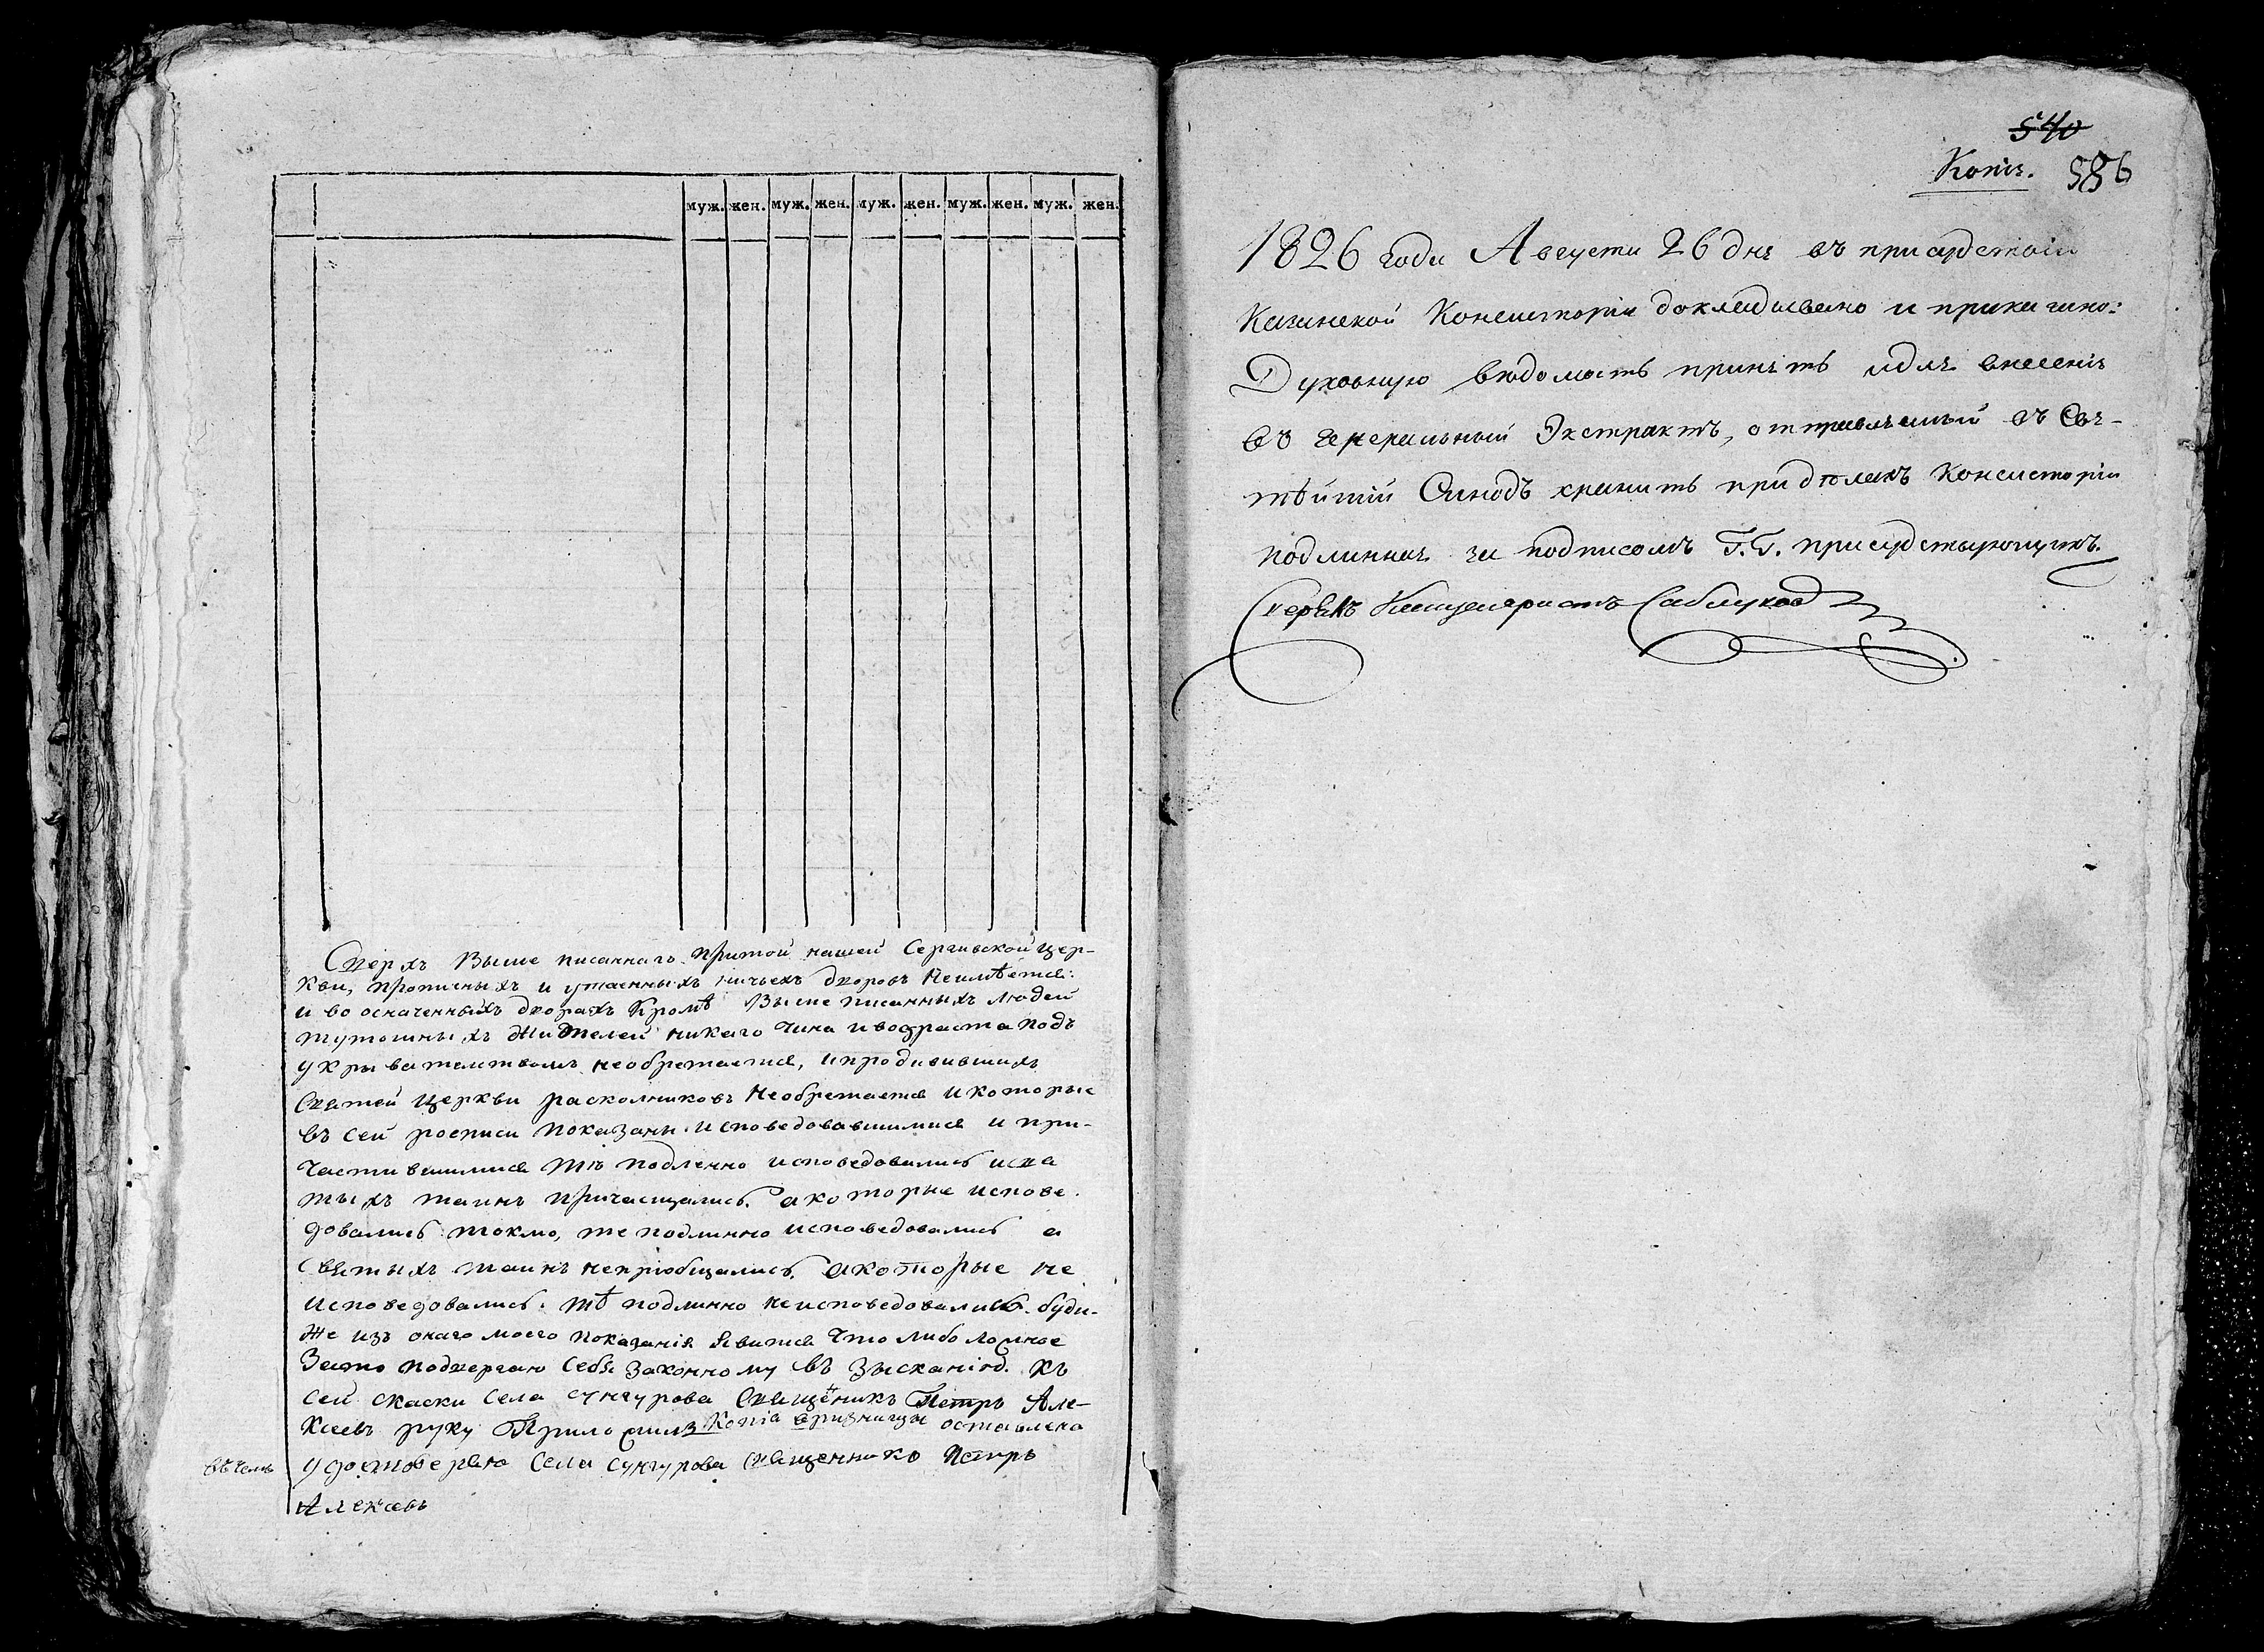 муж. жен. муж. жен. муж. жен. муж. жен. муж. жен.
Сверхъ выше писаннаго притой нашей Сергивской цер-
кви, прописныхъ и утаенныхъ ничьехъ дворовъ неимѣется:
и во означенныхъ дворахъ кромѣ выше писанныхъ людей
тутошныхъ жителей никаго чина и водраста подъ
укрывателтвомъ необретается, и продивившихъ
святей церкви расколниковъ необретается и которые
въ сей росписи показаны исповедовавшимися и при-
частившимися тѣ подленно исповедовались и свя
тыхъ таинъ причащались. а которые испове-
довались токмо, те подлинно исповедовались а
святыхъ таинъ неприобщались. а которые не
исповедовались. тѣ подлинно неисповедовались. буди-
же изъ онаго моего показанія явится что либо ложное
зато подвергаю себя законному въ зысканію. къ
сей скаски села сунгурова священикъ Петръ Але-
ксеевъ руку приложилъ Копіа вризницы оставлена
въ чемъ удостоверяю села сунгурова священникъ Петръ
Алексеевъ
540
Копія. 586
1826 года Августа 26 дня въ присудствіи
Казанской Консисторіи докладывано и приказано:
Духовную вѣдомость принять и для внесенія
въ генеральный Экстрактъ, отправляемый въ Свя-
тѣйшій Синодъ хранить при дѣлахъ Консисторіи
подлинная за подписомъ Г.Г. присудствующихъ.
Сверялъ Канцеляристъ Саблуковъ